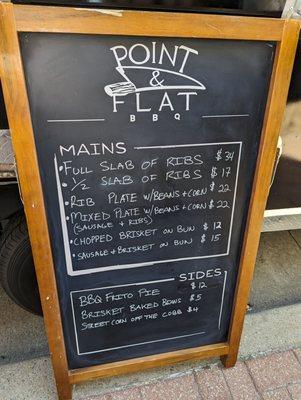 POINT
& FLAT
BBQ
MAINS
• FULL SLAB OF RIBS $34
• 1/2 SLAB OF RIBS $17
• RIB PLATE W/BEANS + CORN $22
• MIXED PLATE W/BEANS + CORN $22
(SAUSAGE + RIBS)
• CHOPPED BRISKET ON BUN $12
• SAUSAGE + BRISKET ON BUN $15
SIDES
BBQ FRITO PIE $12
BRISKET BAKED BOWS $5
STREET CORN OFF THE COBB $4